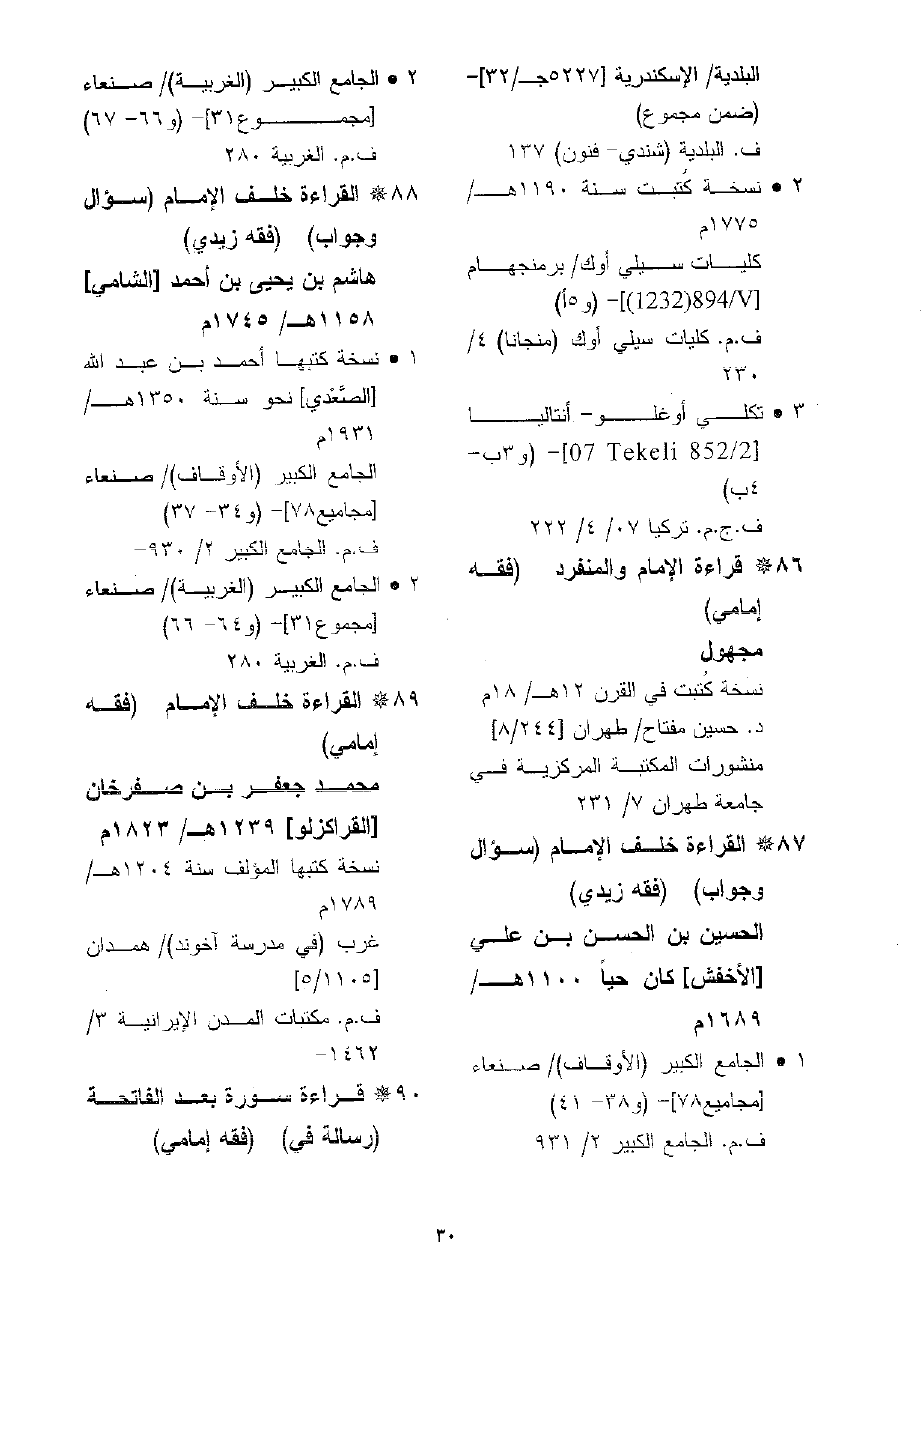 البلدية/ الإسكندرية [٥٢٢٧جـ/٣٢]-
(ضمن مجموع)
ف. البلدية (شندي- فنون) ١٣٧
٢ • نسخة كُتبت سنة ١١٩٠هـ/
١٧٧٥م
كليات سيلي أوك/ برمنجهام
[894/V(1232)]- (و٥أ)
ف.م. كليات سيلي أوك (منجانا) ٤/
٢٣٠
٣ • تكلي أوغلو- أنتاليا
[07 Tekeli 852/2]- (و٣ب-
٤ب)
ف.ج.م. تركيا ٠٧/ ٤/ ٢٢٢
٨٦* قراءة الإمام والمنفرد (فقه
إمامي)
مجهول
نسخة كُتبت في القرن ١٢هـ/ ١٨م
د. حسين مفتاح/ طهران [٨/٢٤٤]
منشورات المكتبة المركزية في
جامعة طهران ٧/ ٢٣١
٨٧* القراءة خلف الإمام (سؤال
وجواب) (فقه زيدي)
الحسين بن الحسن بن علي
[الأخفش] كان حياً ١١٠٠هـ/
١٦٨٩م
١ • الجامع الكبير (الأوقاف)/ صنعاء
[مجاميع٧٨]- (و٣٨- ٤١)
ف.م. الجامع الكبير ٢/ ٩٣١
٢ • الجامع الكبير (الغربية)/ صنعاء
[مجموع٣١]- (و٦٦- ٦٧)
ف.م. الغربية ٢٨٠
٨٨* القراءة خلف الإمام (سؤال
وجواب) (فقه زيدي)
هاشم بن يحيى بن أحمد [الشامي]
١١٥٨هـ/ ١٧٤٥م
١ • نسخة كتبها أحمد بن عبد الله
[الصَّعْدي] نحو سنة ١٣٥٠هـ/
١٩٣١م
الجامع الكبير (الأوقاف)/ صنعاء
[مجاميع٧٨]- (و٣٤- ٣٧)
ف.م. الجامع الكبير ٢/ ٩٣٠-
٢ • الجامع الكبير (الغربية)/ صنعاء
[مجموع٣١]- (و٦٤- ٦٦)
ف.م. الغربية ٢٨٠
٨٩* القراءة خلف الإمام (فقه
إمامي)
محمد جعفر بن صفرخان
[القراكزلو] ١٢٣٩هـ/ ١٨٢٣م
نسخة كتبها المؤلف سنة ١٢٠٤هـ/
١٧٨٩م
غرب (في مدرسة آخوند)/ همدان
[٥/١١٠٥]
ف.م. مكتبات المدن الإيرانية ٣/
١٤٦٢-
٩٠* قراءة سورة بعد الفاتحة
(رسالة في) (فقه إمامي)
٣٠